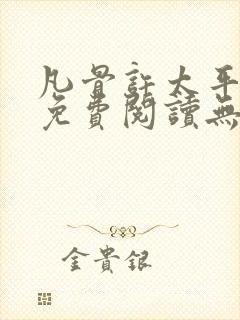 凡骨許太平
免費閱讀無
金貴銀